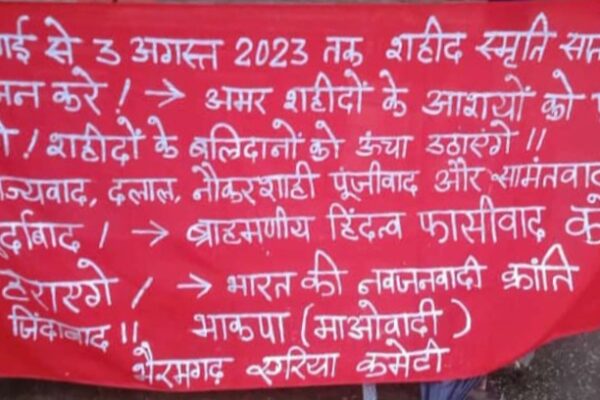 से 3 अगस्त 2023 तक शहीद स्मृति
करे! → अमर शहीदों के आशयों को
! शहीदों के बलिदानों को ऊंचा उठाएंगे ॥
ज्यवाद, दलाल, नौकरशाही पूंजीवाद और सामंतवाद
र्दाबाद! → ब्राहमणीय हिंदत्व फासीवाद
! → भारत की नवजनवादी क्रांति
जिंदाबाद॥ भाकपा (माओवादी)
भैरमगढ़ एरिया कमेटी